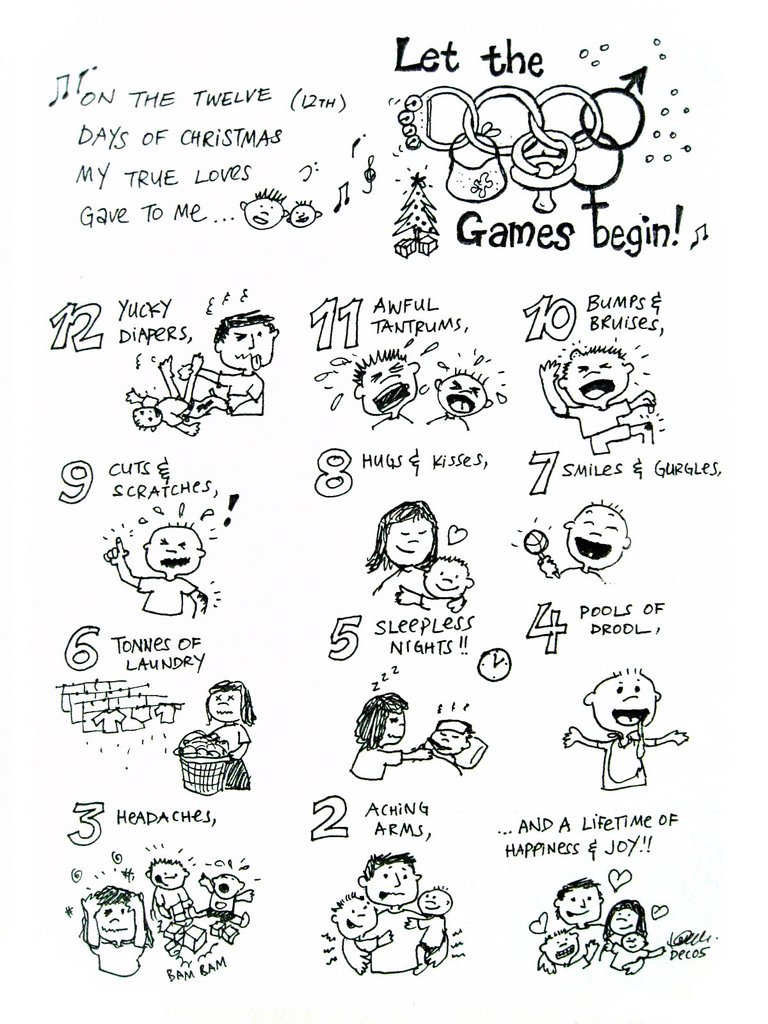 ON THE TWELVE (12TH)
DAYS OF CHRISTMAS
MY TRUE LOVES
GAVE TO ME...
Let the
Games begin!
12 YUCKY
DIAPERS,
11 AWFUL
TANTRUMS,
10 BUMPS &
BRUISES,
9 CUTS &
SCRATCHES,
!
8 HUGS & KISSES,
7 SMILES & GURGLES,
6 TONNES OF
LAUNDRY
5 SLEEPLESS
NIGHTS!!
ZZZ
4 POOLS OF
DROOL,
3 HEADACHES,
BAM BAM
2 ACHING
ARMS,
...AND A LIFETIME OF
HAPPINESS & JOY!!
DEC05